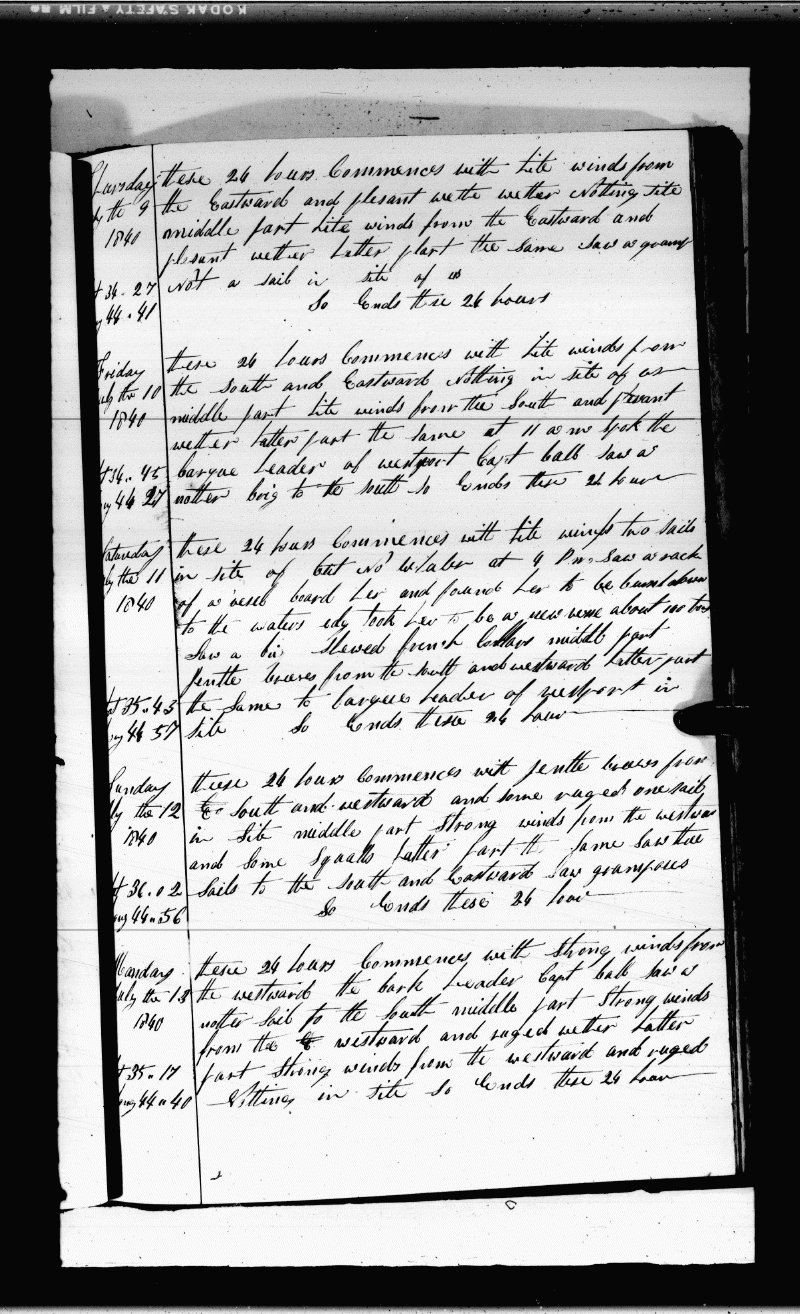 KODAK SAFETY FILM
these 24 hours Commences with Lite winds from
the Eastward and plesant wethe wether Notting site
middle part Lite winds from the Eastward and
plesant wether Latter plart the same saw a gramp
Not a sail in site of us
So Ends these 24 hours
Thursday
ly the 9
1840
t 36 - 27
g 44 - 41
these 24 hours Commences with Lite winds from
the South and Eastward Notting in site of us
middle part Lite winds from the South and plesant
wether Latter part the same at 11 a m spok the
barque Leader of westport Capt ball saw a
nother brig to the south So Ends these 24 hours
Friday
uly the 10
1840
t 36 " 45
ng 44 27
these 24 hours Commences with Lite winds two sails
in site of but No whaler at 4 Pm saw a rack
of a vesel board her and found her to be burnt down
to the waters edg took her to be a new vesel about 100 tons
saw a slewed french middle part
jentle breeses from the south and westward Latter part
the same to barque Leader of westport in
site So Ends these 24 hours
Saturday
ly the 11
1840
at 35 " 43
ong 44 57
these 24 hours Commences with jentle breeses from
to South and westward and some ruged one sail
in Site middle part Strong winds from the westward
and Some Squalls Latter part the same Saw three
Sails to the south and Eastward Saw grampuses
So Ends these 24 hours
Sunday
ly the 12
1840
at 36 " 02
ong 44 " 56
these 24 hours Commences with Strong winds from
the westward the bark Leader Capt ball saw a
nother Sail to the South middle part Strong winds
from the westward and ruged wether Latter
part Strong winds from the westward and ruged
Notting in site So Ends these 24 hours
Monday
July the 13
1840
t 35 " 17
ong 44 " 40